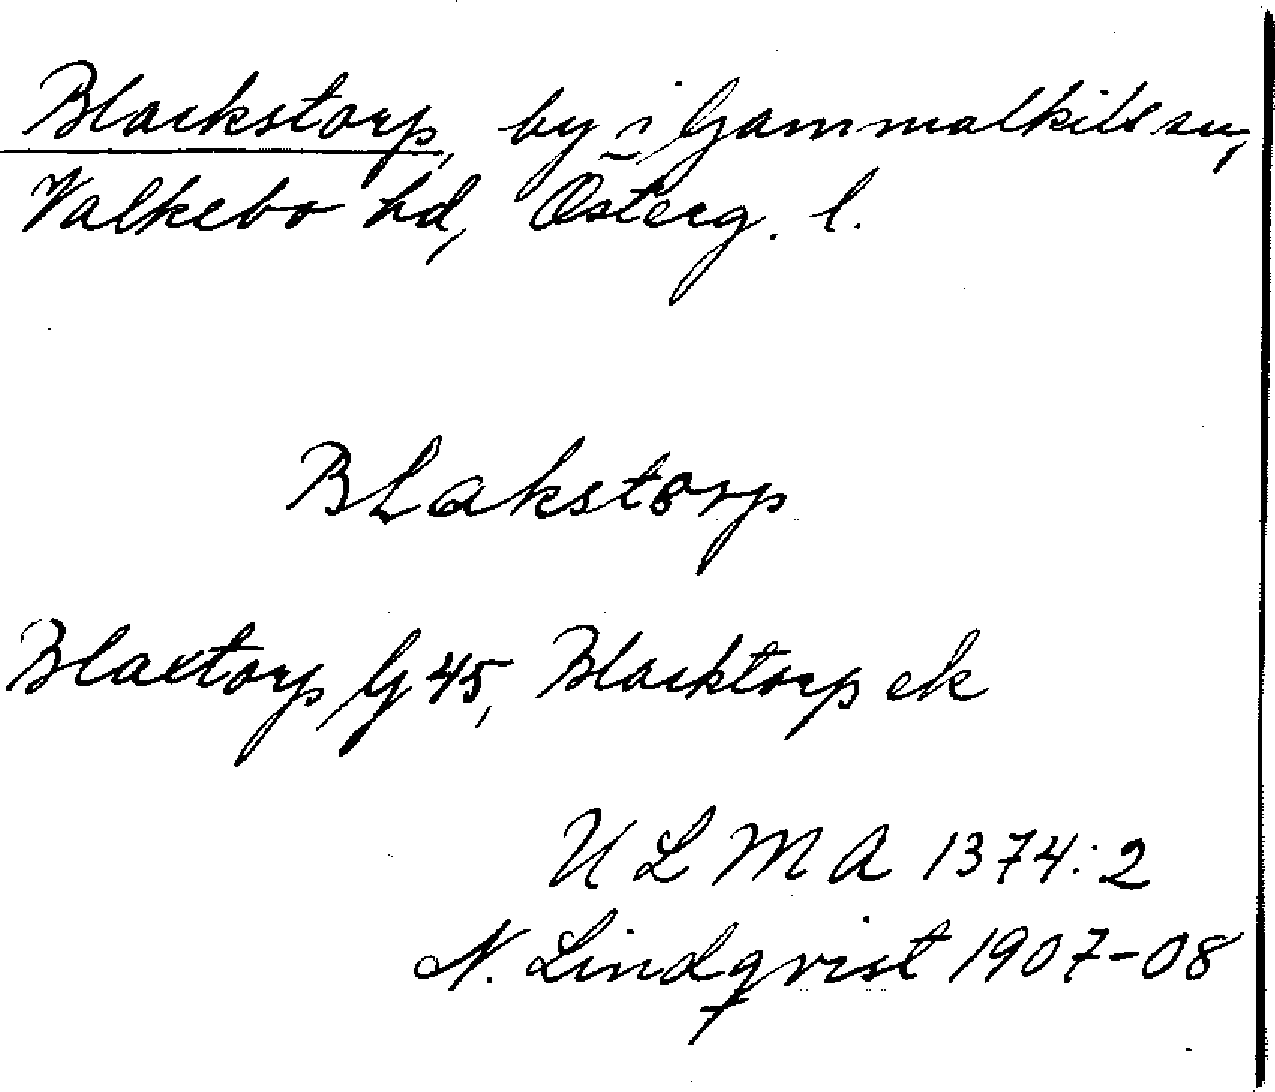 Blackstorp, by i Gammalkils sn,
Valkebo hd, Österg. l.
Blakstorp
Blaxtorp G 45, Blacktorp ek
U L M A 1374:2
N. Lindqvist 1907-08